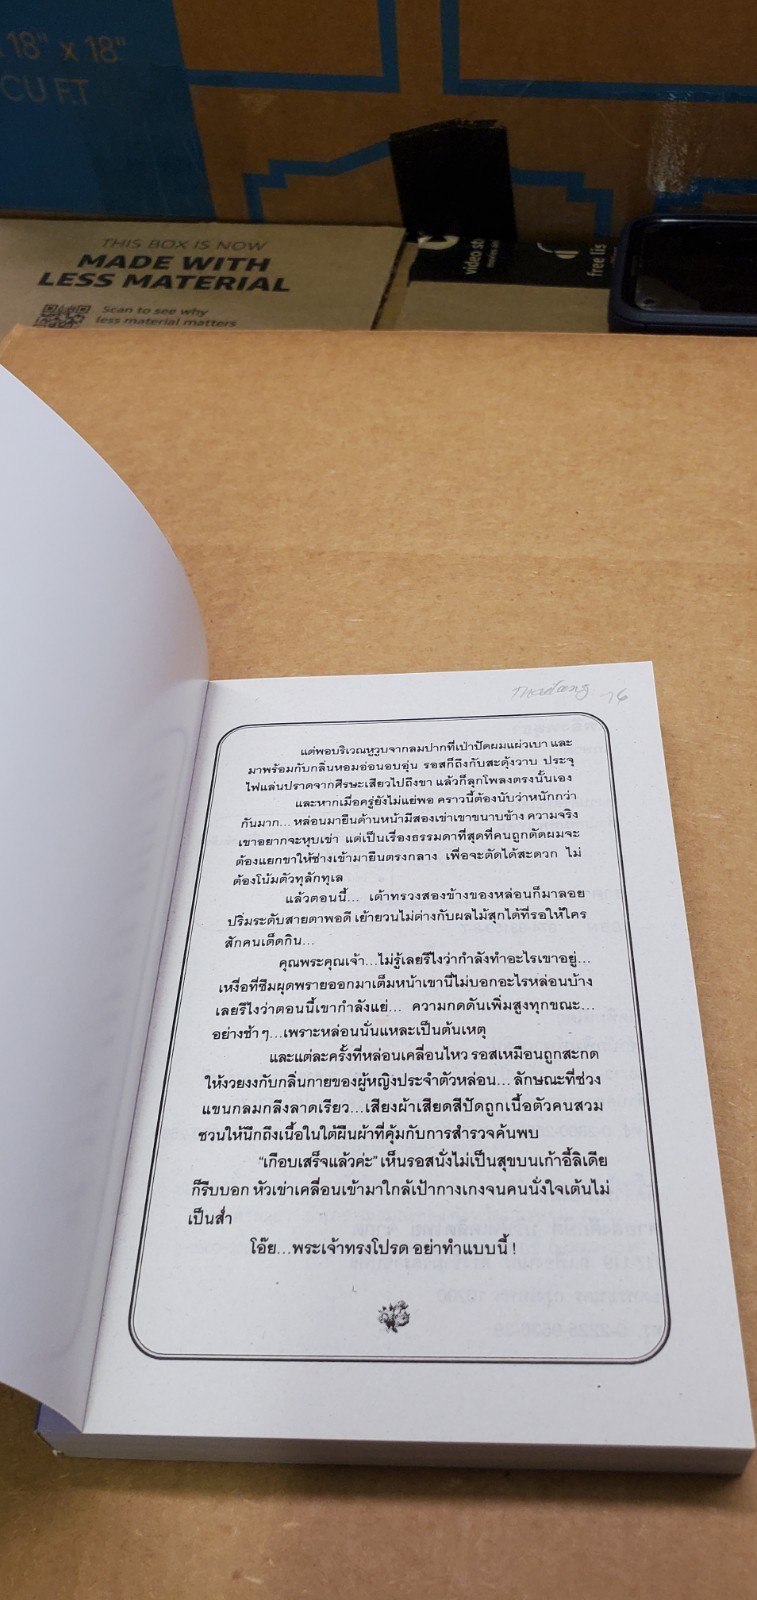 18" x 18"
CU FT
THIS BOX IS NOW
MADE WITH
LESS MATERIAL
Scan to see why
less material matters
video
free
แต่พอบริเวณหูวูบจากลมปากที่เป่าปัดผมแผ่วเบา และ
มาพร้อมกับกลิ่นหอมอ่อนอบอุ่น รอสก็ถึงกับสะดุ้งวาบ ประจุ
ไฟแล่นปราดจากศีรษะเสียวไปถึงขา แล้วก็ลุกโพลงตรงนั้นเอง
และหากเมื่อครู่ยังไม่แย่พอ คราวนี้ต้องนับว่าหนักกว่า
กันมาก... หล่อนมายืนด้านหน้ามีสองเข่าเขาขนาบข้าง ความจริง
เขาอยากจะหุบเข่า แต่เป็นเรื่องธรรมดาที่สุดที่คนถูกตัดผมจะ
ต้องแยกขาให้ช่างเข้ามายืนตรงกลาง เพื่อจะตัดได้สะดวก ไม่
ต้องโน้มตัวทุลักทุเล
แล้วตอนนี้... เต้าทรวงสองข้างของหล่อนก็มาลอย
ปริ่มระดับสายตาพอดี เย้ายวนไม่ต่างกับผลไม้สุกใต้ที่รอให้ใคร
สักคนเด็ดกิน...
คุณพระคุณเจ้า...ไม่รู้เลยรึไงว่ากำลังทำอะไรเขาอยู่...
เหงื่อที่ซึมผุดพรายออกมาเต็มหน้าเขานี่ไม่บอกอะไรหล่อนบ้าง
เลยรึไงว่าตอนนี้เขากำลังแย่... ความกดดันเพิ่มสูงทุกขณะ...
อย่างช้า ๆ...เพราะหล่อนนั่นแหละเป็นต้นเหตุ
และแต่ละครั้งที่หล่อนเคลื่อนไหว รอสเหมือนถูกสะกด
ให้งวยงงกับกลิ่นกายของผู้หญิงประจำตัวหล่อน... ลักษณะที่ช่วง
แขนกลมกลึงลาดเรียว...เสียงผ้าเสียดสีปัดถูกเนื้อตัวคนสวม
ชวนให้นึกถึงเนื้อในใต้ผืนผ้าที่คุ้มกับการสำรวจค้นพบ
"เกือบเสร็จแล้วค่ะ" เห็นรอสนั่งไม่เป็นสุขบนเก้าอี้ลิเดีย
ก็รีบบอก หัวเข่าเคลื่อนเข้ามาใกล้เป้ากางเกงจนคนนั่งใจเต้นไม่
เป็นส่ำ
โอ๊ย...พระเจ้าทรงโปรด อย่าทำแบบนี้ !